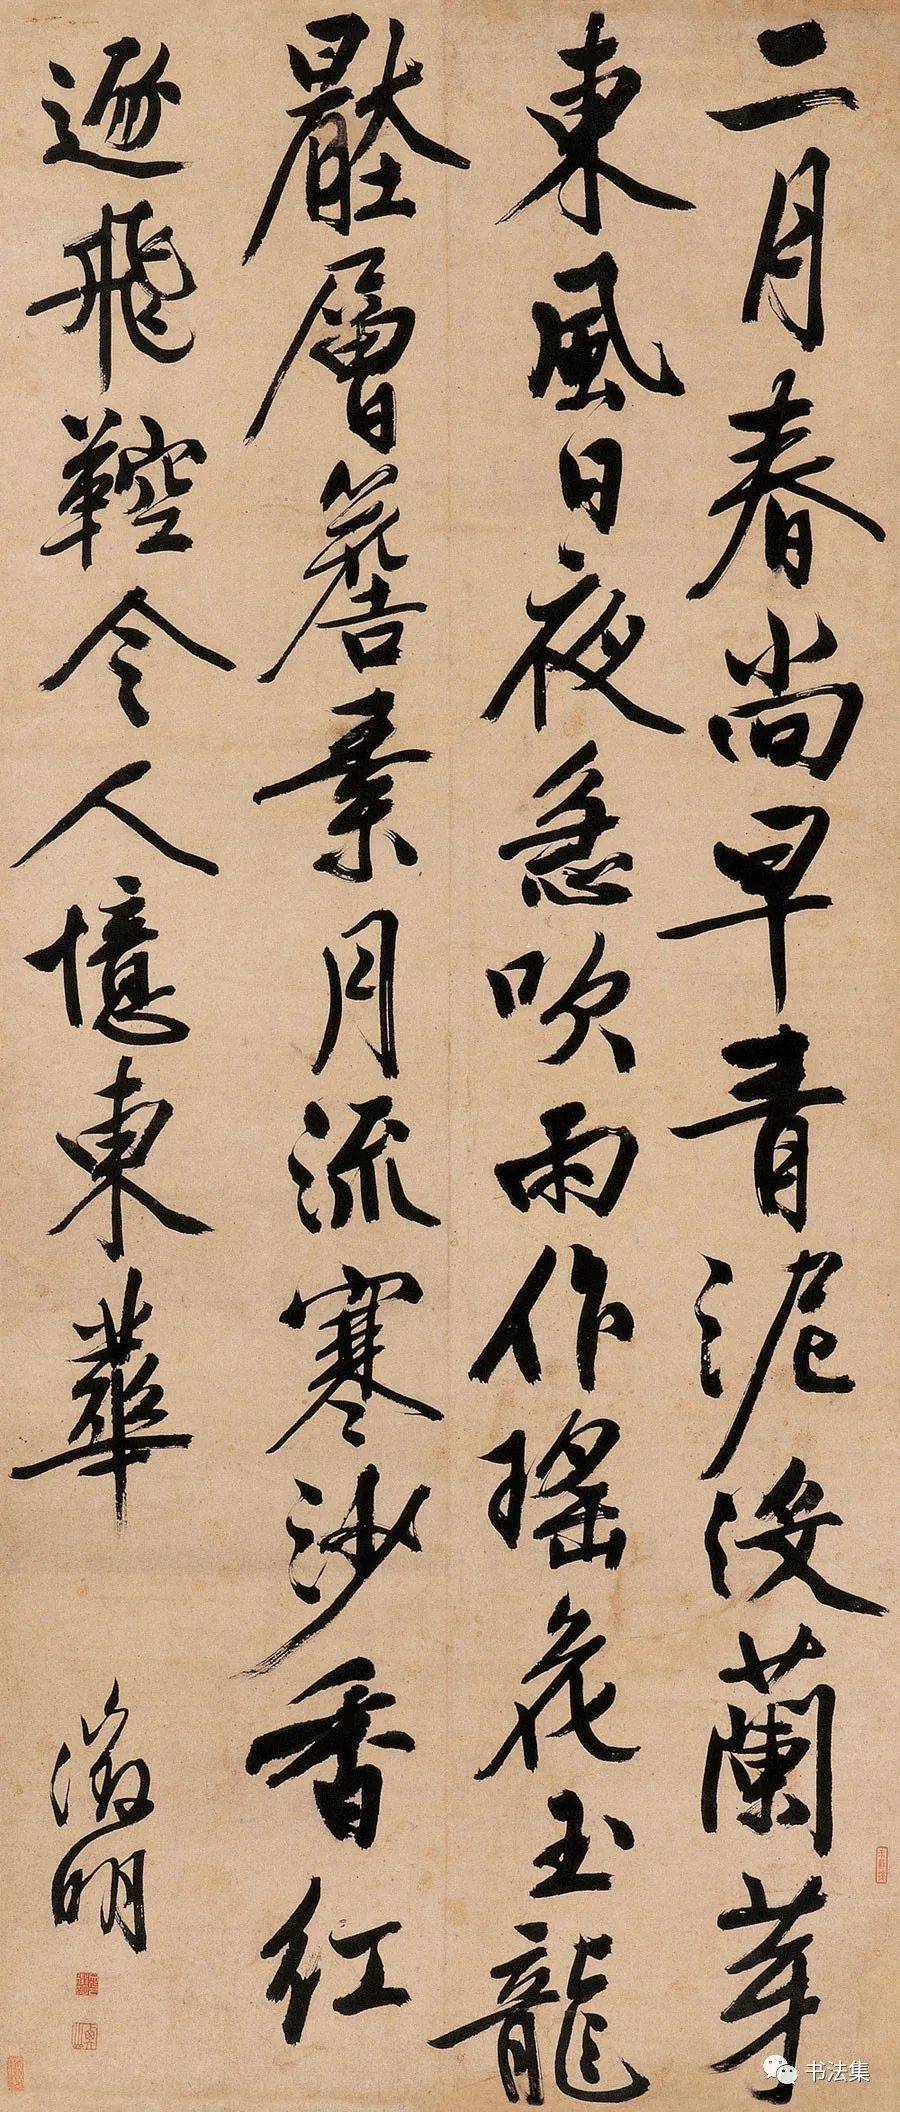 二月春尚早青泥沒蘭芽
東風日夜急吹雨作瑤花玉龍
壓層簷素月流寒沙香紅
逐飛鞚令人憶東華
徵明
书法集